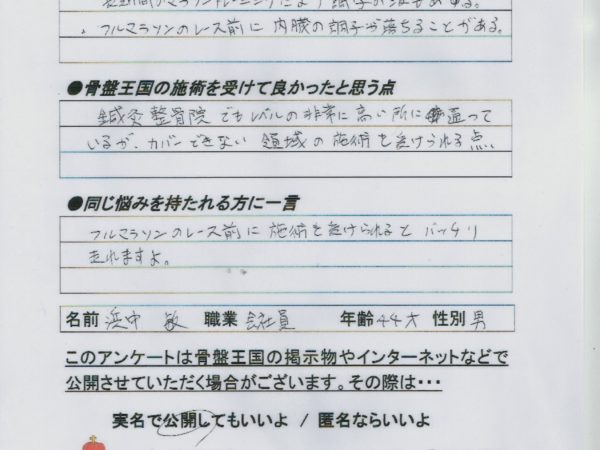 ・フルマラソンのレース前に内臓の調子が落ちることがある。
●骨盤王国の施術を受けて良かったと思う点
鍼灸整骨院でもレベルの非常に高い所に通って
いるが、カバーできない領域の施術を受けられる点、
●同じ悩みを持たれる方に一言
フルマラソンのレース前に施術を受けられるとバッチリ
走れますよ。
名前 浜中 敏 職業 会社員 年齢 44才 性別 男
このアンケートは骨盤王国の掲示物やインターネットなどで
公開させていただく場合がございます。その際は・・・
実名で公開してもいいよ / 匿名ならいいよ